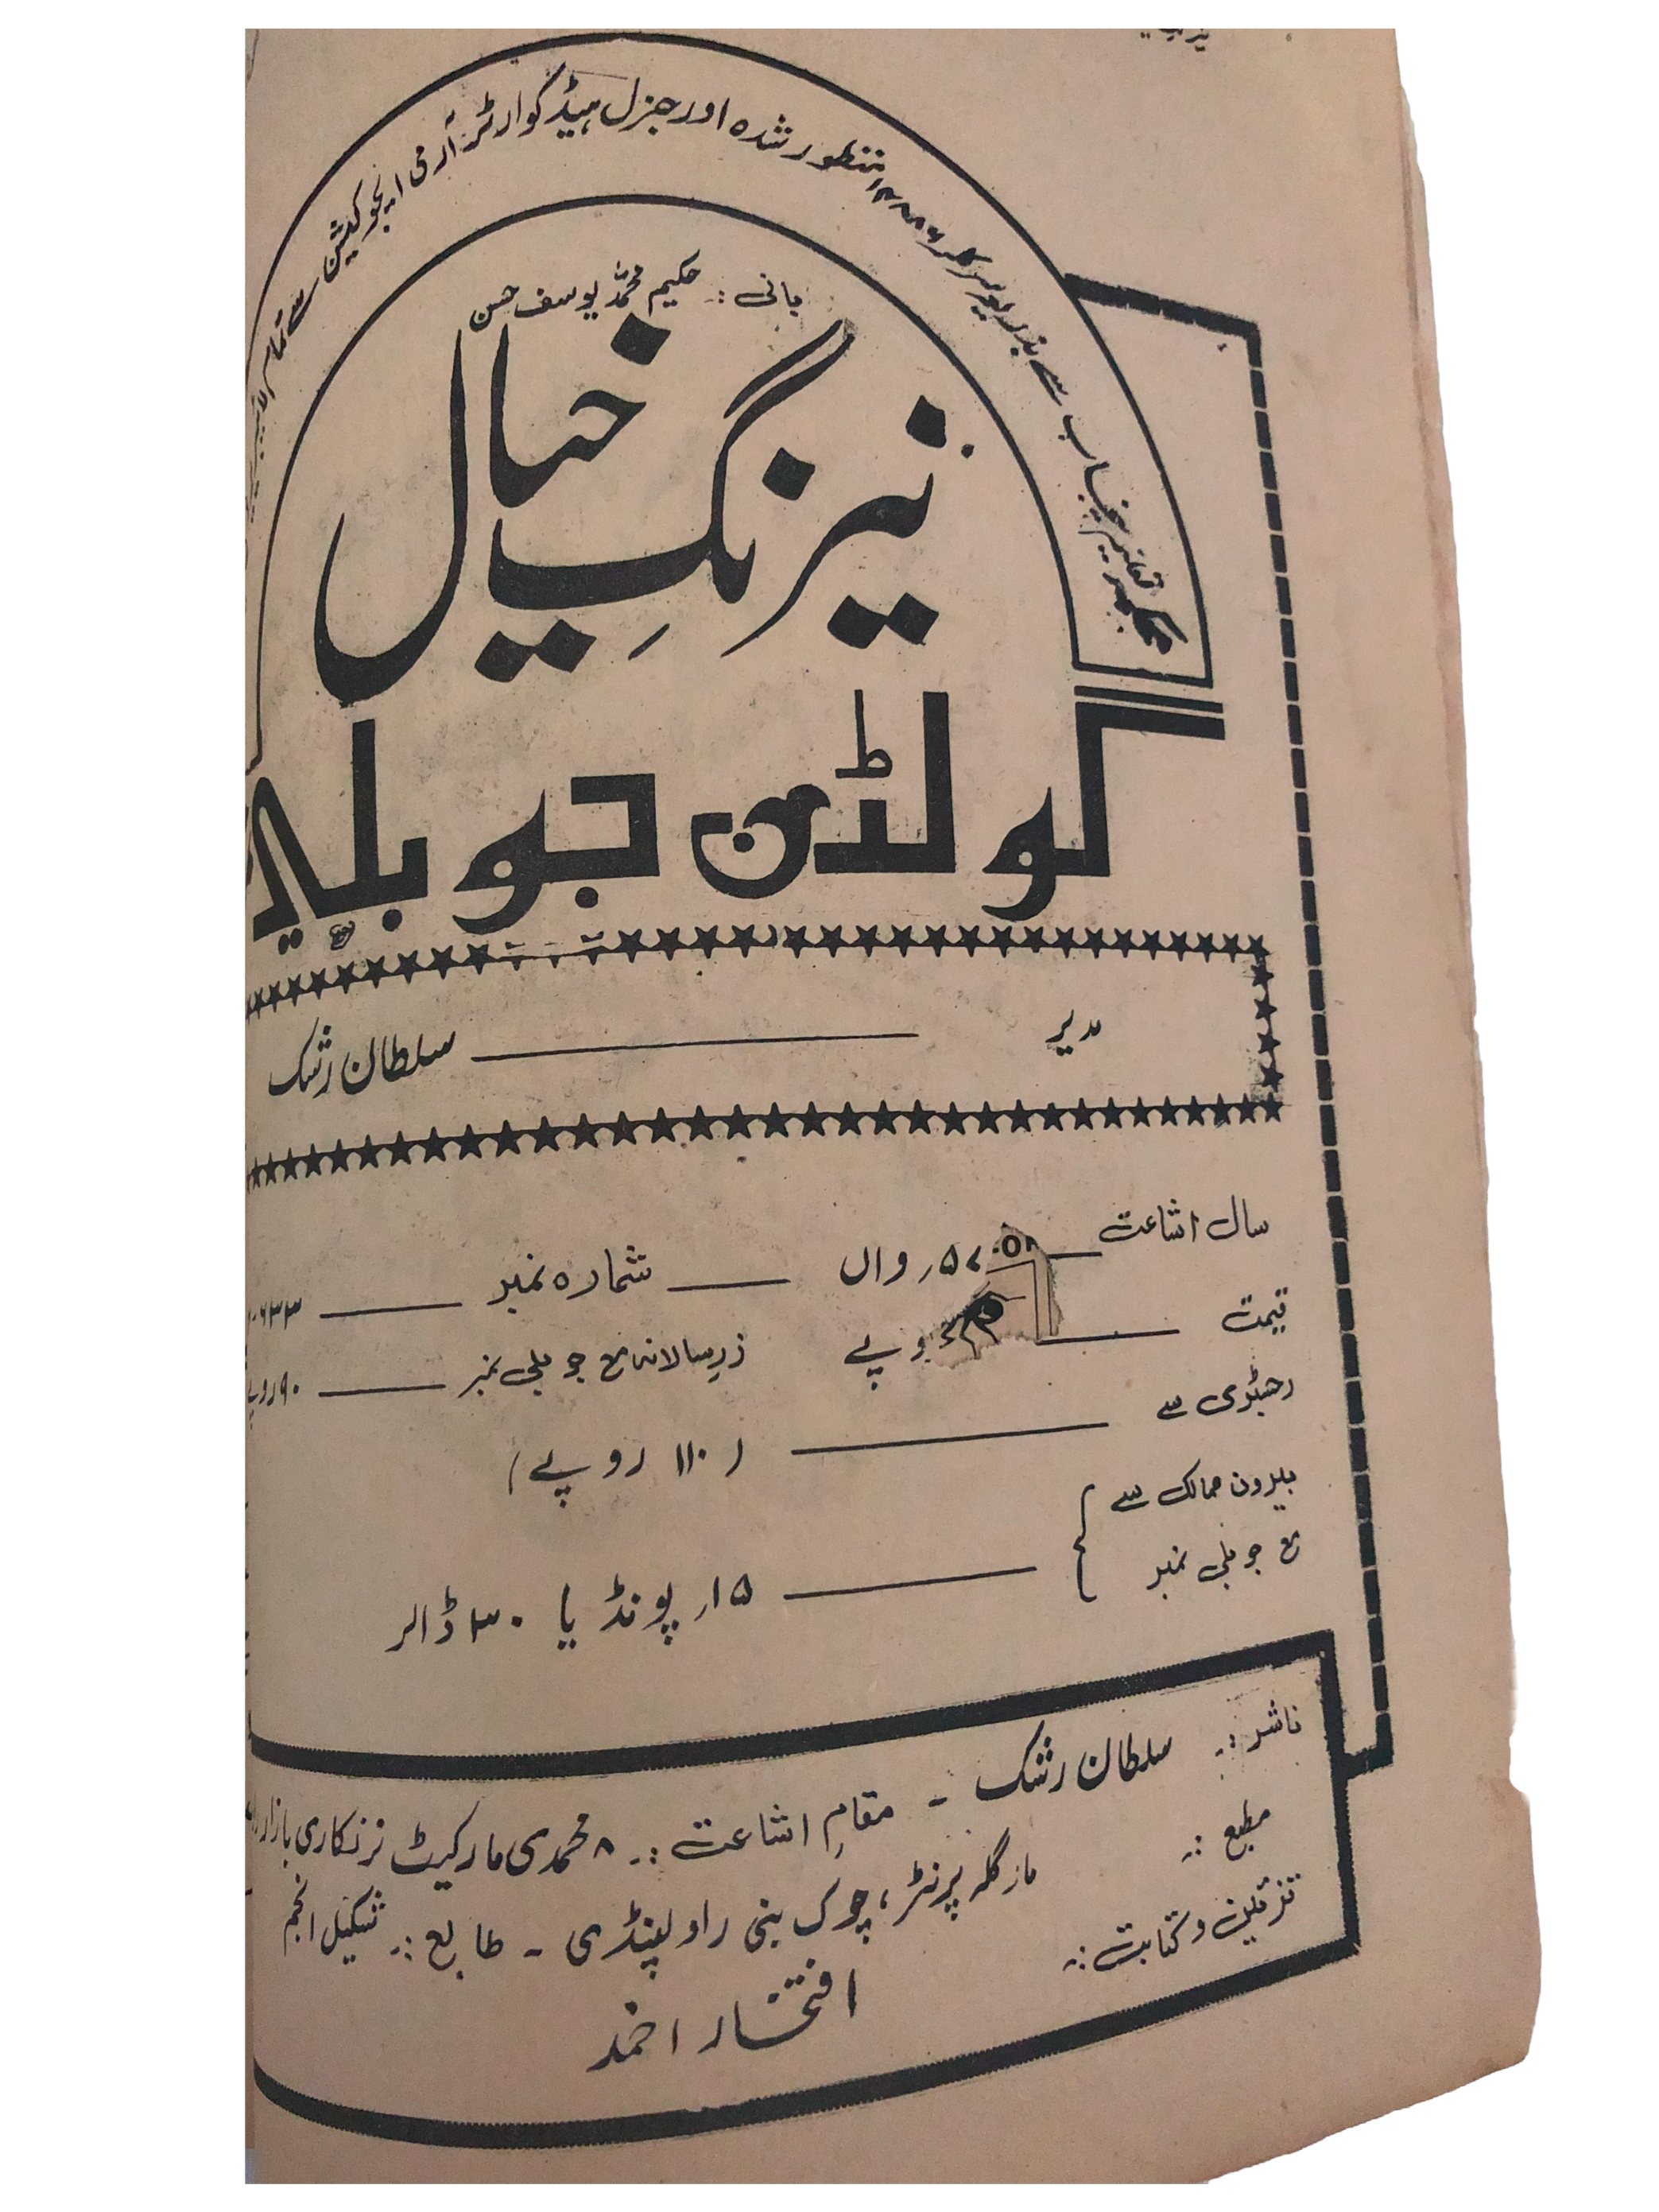 محکمہ تعلیم پنجاب سے بذریعہ سرکلر منظور شدہ اور جنرل ہیڈ کوارٹر آرمی ایجوکیشن سے تمام
بانی :۔ حکیم محمد یوسف حسن
نیرنگِ خیال
گولڈن جوبلی
مدیر ــــــ سلطان رشک
سال اشاعت ــــــ ۵۷ رواں ــــــ شمارہ نمبر ــــــ ۶۳۳
قیمت ــــــ روپے زرِ سالانہ مع جوبلی نمبر ــــــ ۹۰ روپے
رجسٹری سے ــــــ ( ۱۱۰ روپے )
بیرون ممالک سے
مع جوبلی نمبر ــــــ ۱۵ر پونڈ یا ۳۰ ڈالر
ناشر :۔ سلطان رشک ۔ مقامِ اشاعت :۔ ۸ محمدی مارکیٹ نرنکاری بازار
مطبع :۔ مارگلہ پرنٹر، چوک بنی راولپنڈی ۔ طابع :۔ شکیل انجم
تزئین و کتابت :۔ افتخار احمد